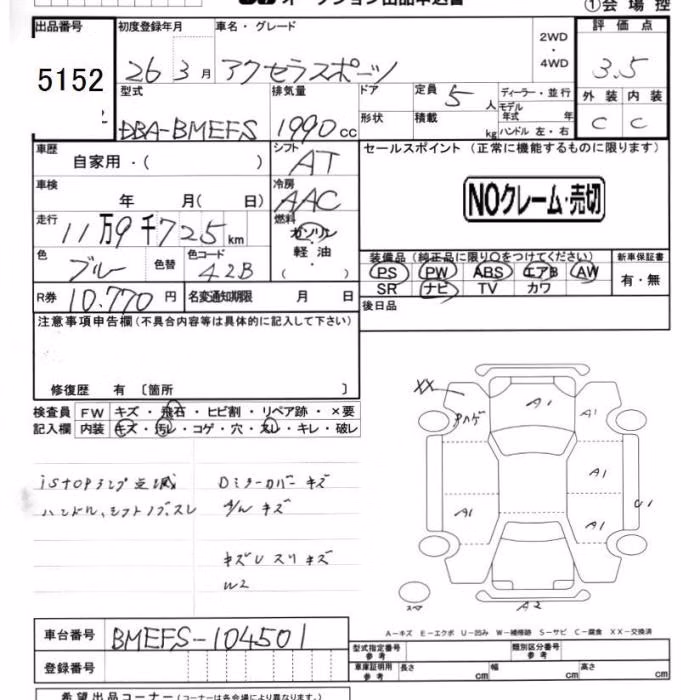 オークション出品申込書
①会場控
出品番号 初度登録年月 車名・グレード 2WD・4WD 評価点
5152 26 3月 アクセラスポーツ 3.5
型式 排気量 ドア 定員 5人 ディーラー・並行 外装 内装
DBA-BMEFS 1990cc 形状 積載 kg モデル年式 年 ハンドル 左・右 C C
車歴 シフト セールスポイント (正常に機能するものに限ります)
自家用・( ) AT
車検 年 月( 日) 冷房 AAC NOクレーム・売切
走行 11万9千725km 燃料 ガソリン
軽油・( )
色 ブルー 色替 色コード 42B 装備品 (純正品に限り○をつけてください) 新車保証書
PS PW ABS エアB AW 有・無
SR ナビ TV カワ
R券 10,770円 名変通知期限 月 日 後日品
注意事項申告欄(不具合内容等は具体的に記入して下さい)
修復歴 有 〔箇所 〕
検査員 FW キズ・飛石・ヒビ割・リペア跡・×要
記入欄 内装 キズ・汚レ・コゲ・穴・スレ・キレ・破レ
iSTOPランプ点滅 Dミラーカバーキズ
ハンドル、シフトノブスレ A/Wキズ
キズUスリキズ
W2
XX
A1 A1
A1
A1 A1 U1
A2
A-キズ E-エクボ U-凹み W-補修跡 S-サビ C-腐食 XX-交換済
車台番号 BMEFS-104501
型式指定番号 参考 類別区分番号 参考
登録番号 車庫証明用 参考 長さ cm 幅 cm 高さ cm
希望出品コーナー(コーナーは各会場により異なります。)